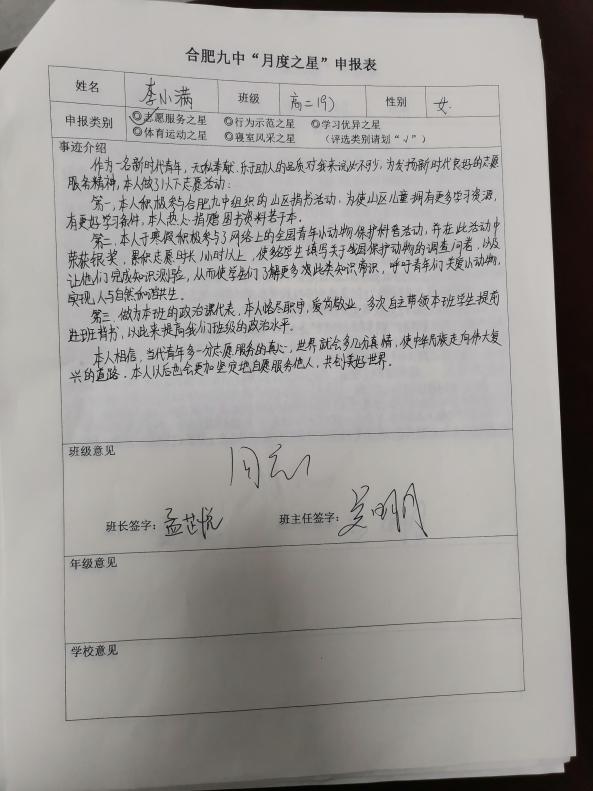 合肥九中“月度之星”申报表
姓名 李小满 班级 高二(9) 性别 女.
申报类别 ◎志愿服务之星 ◎行为示范之星 ◎学习优异之星
◎体育运动之星 ◎寝室风采之星 （评选类别请划“√”）
事迹介绍
作为一名新时代青年，无私奉献、乐于助人的品质对我来说必不可少，为发扬新时代良好的志愿
服务精神，本人做了以下志愿活动：
第一，本人积极参与合肥九中组织的山区捐书活动，为使山区儿童拥有更多学习资源，
有更好学习条件，本人热心捐赠图书资料若干本.
第二，本人于寒假积极参与了网络上的全国青年小动物保护科普活动，并在此活动中
荣获银奖，累积志愿时长1小时以上，使多名学生填写关于我国保护动物的调查问卷，以及
让他们完成知识测验，从而使学生们了解更多诸此类知识常识，呼吁青年们关爱小动物，
实现人与自然和谐共生.
第三，做为本班的政治课代表，本人恪尽职守，爱岗敬业，多次自主带领本班学生提前
进班背书，以此来提高我们班级的政治水平.
本人相信，当代青年多一分志愿服务的真心，世界就会多几分真情，使中华民族走向伟大复
兴的道路.本人以后也会更加坚定地自愿服务他人，共创美好世界.
班级意见
同意
班长签字： 班主任签字：
年级意见
学校意见